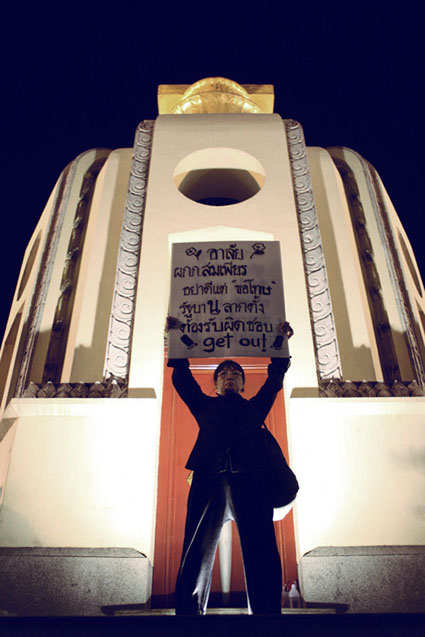 อาลัย
ผกก.สมเพียร
อย่าดีแต่ "ขอโทษ"
รัฐบาน ลากตั้ง
ต้องรับผิดชอบ
get out!